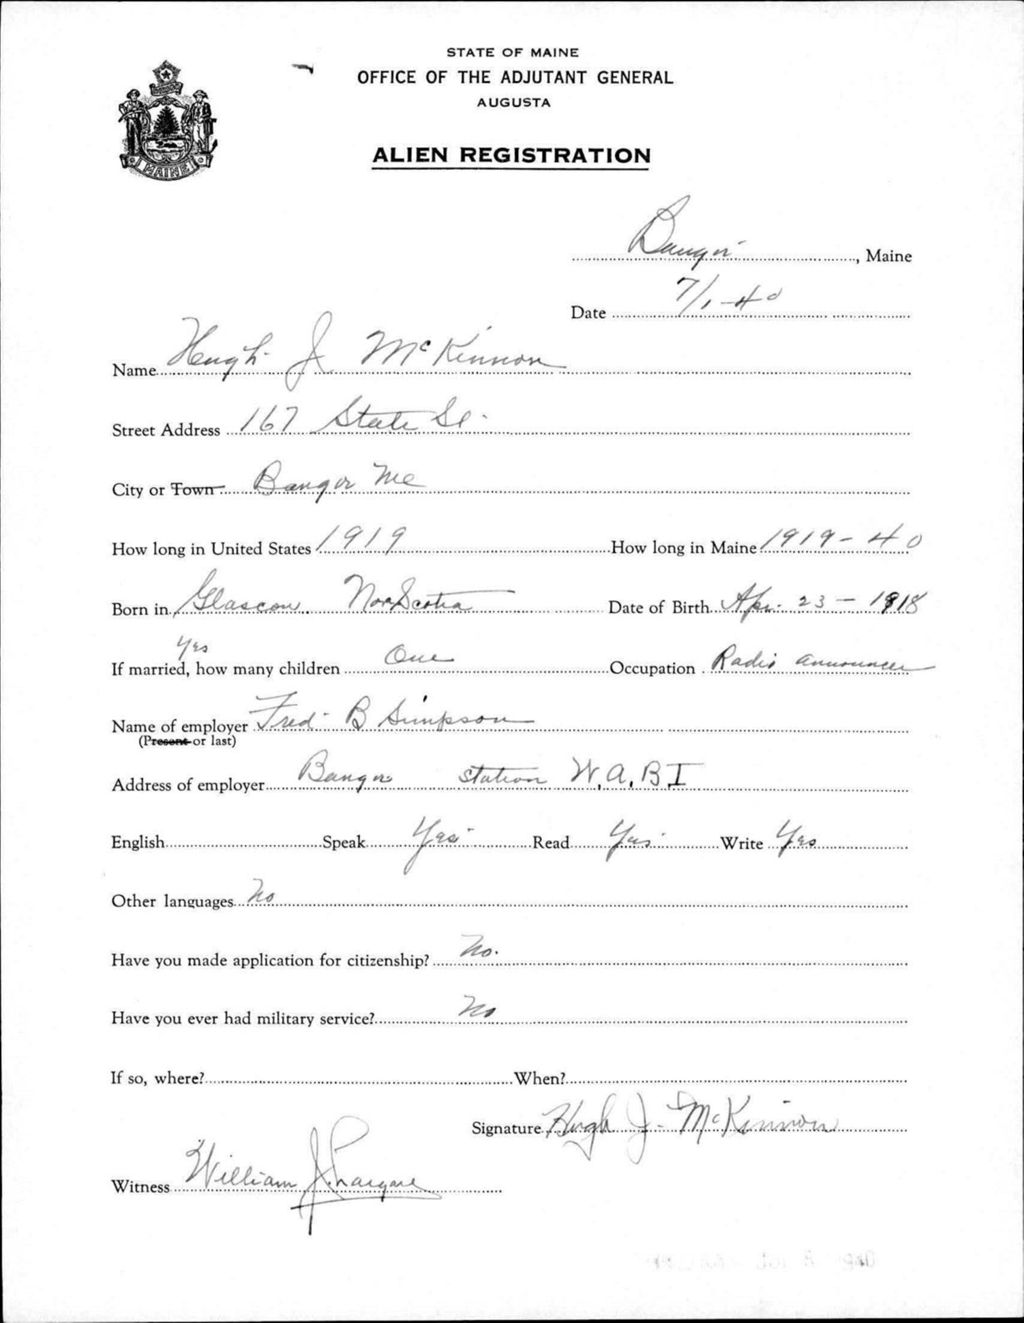 STATE OF MAINE
OFFICE OF THE ADJUTANT GENERAL
AUGUSTA
ALIEN REGISTRATION
MAINE
Bangor, Maine
Date 7/1-40
Name Hugh J McKinnon
Street Address 167 State St.
City or Town Bangor Me
How long in United States 1919 How long in Maine 1919-40
Born in Glascow, Nova Scotia Date of Birth Apr. 23-1918
Yes
If married, how many children One Occupation Radio announcer
Name of employer Fred B Simpson
(Present or last)
Address of employer Bangor station W.A.B.I
English Speak Yes Read Yes Write Yes
Other languages No
Have you made application for citizenship? No.
Have you ever had military service? No
If so, where? When?
Signature Hugh J. McKinnon
Witness William J.